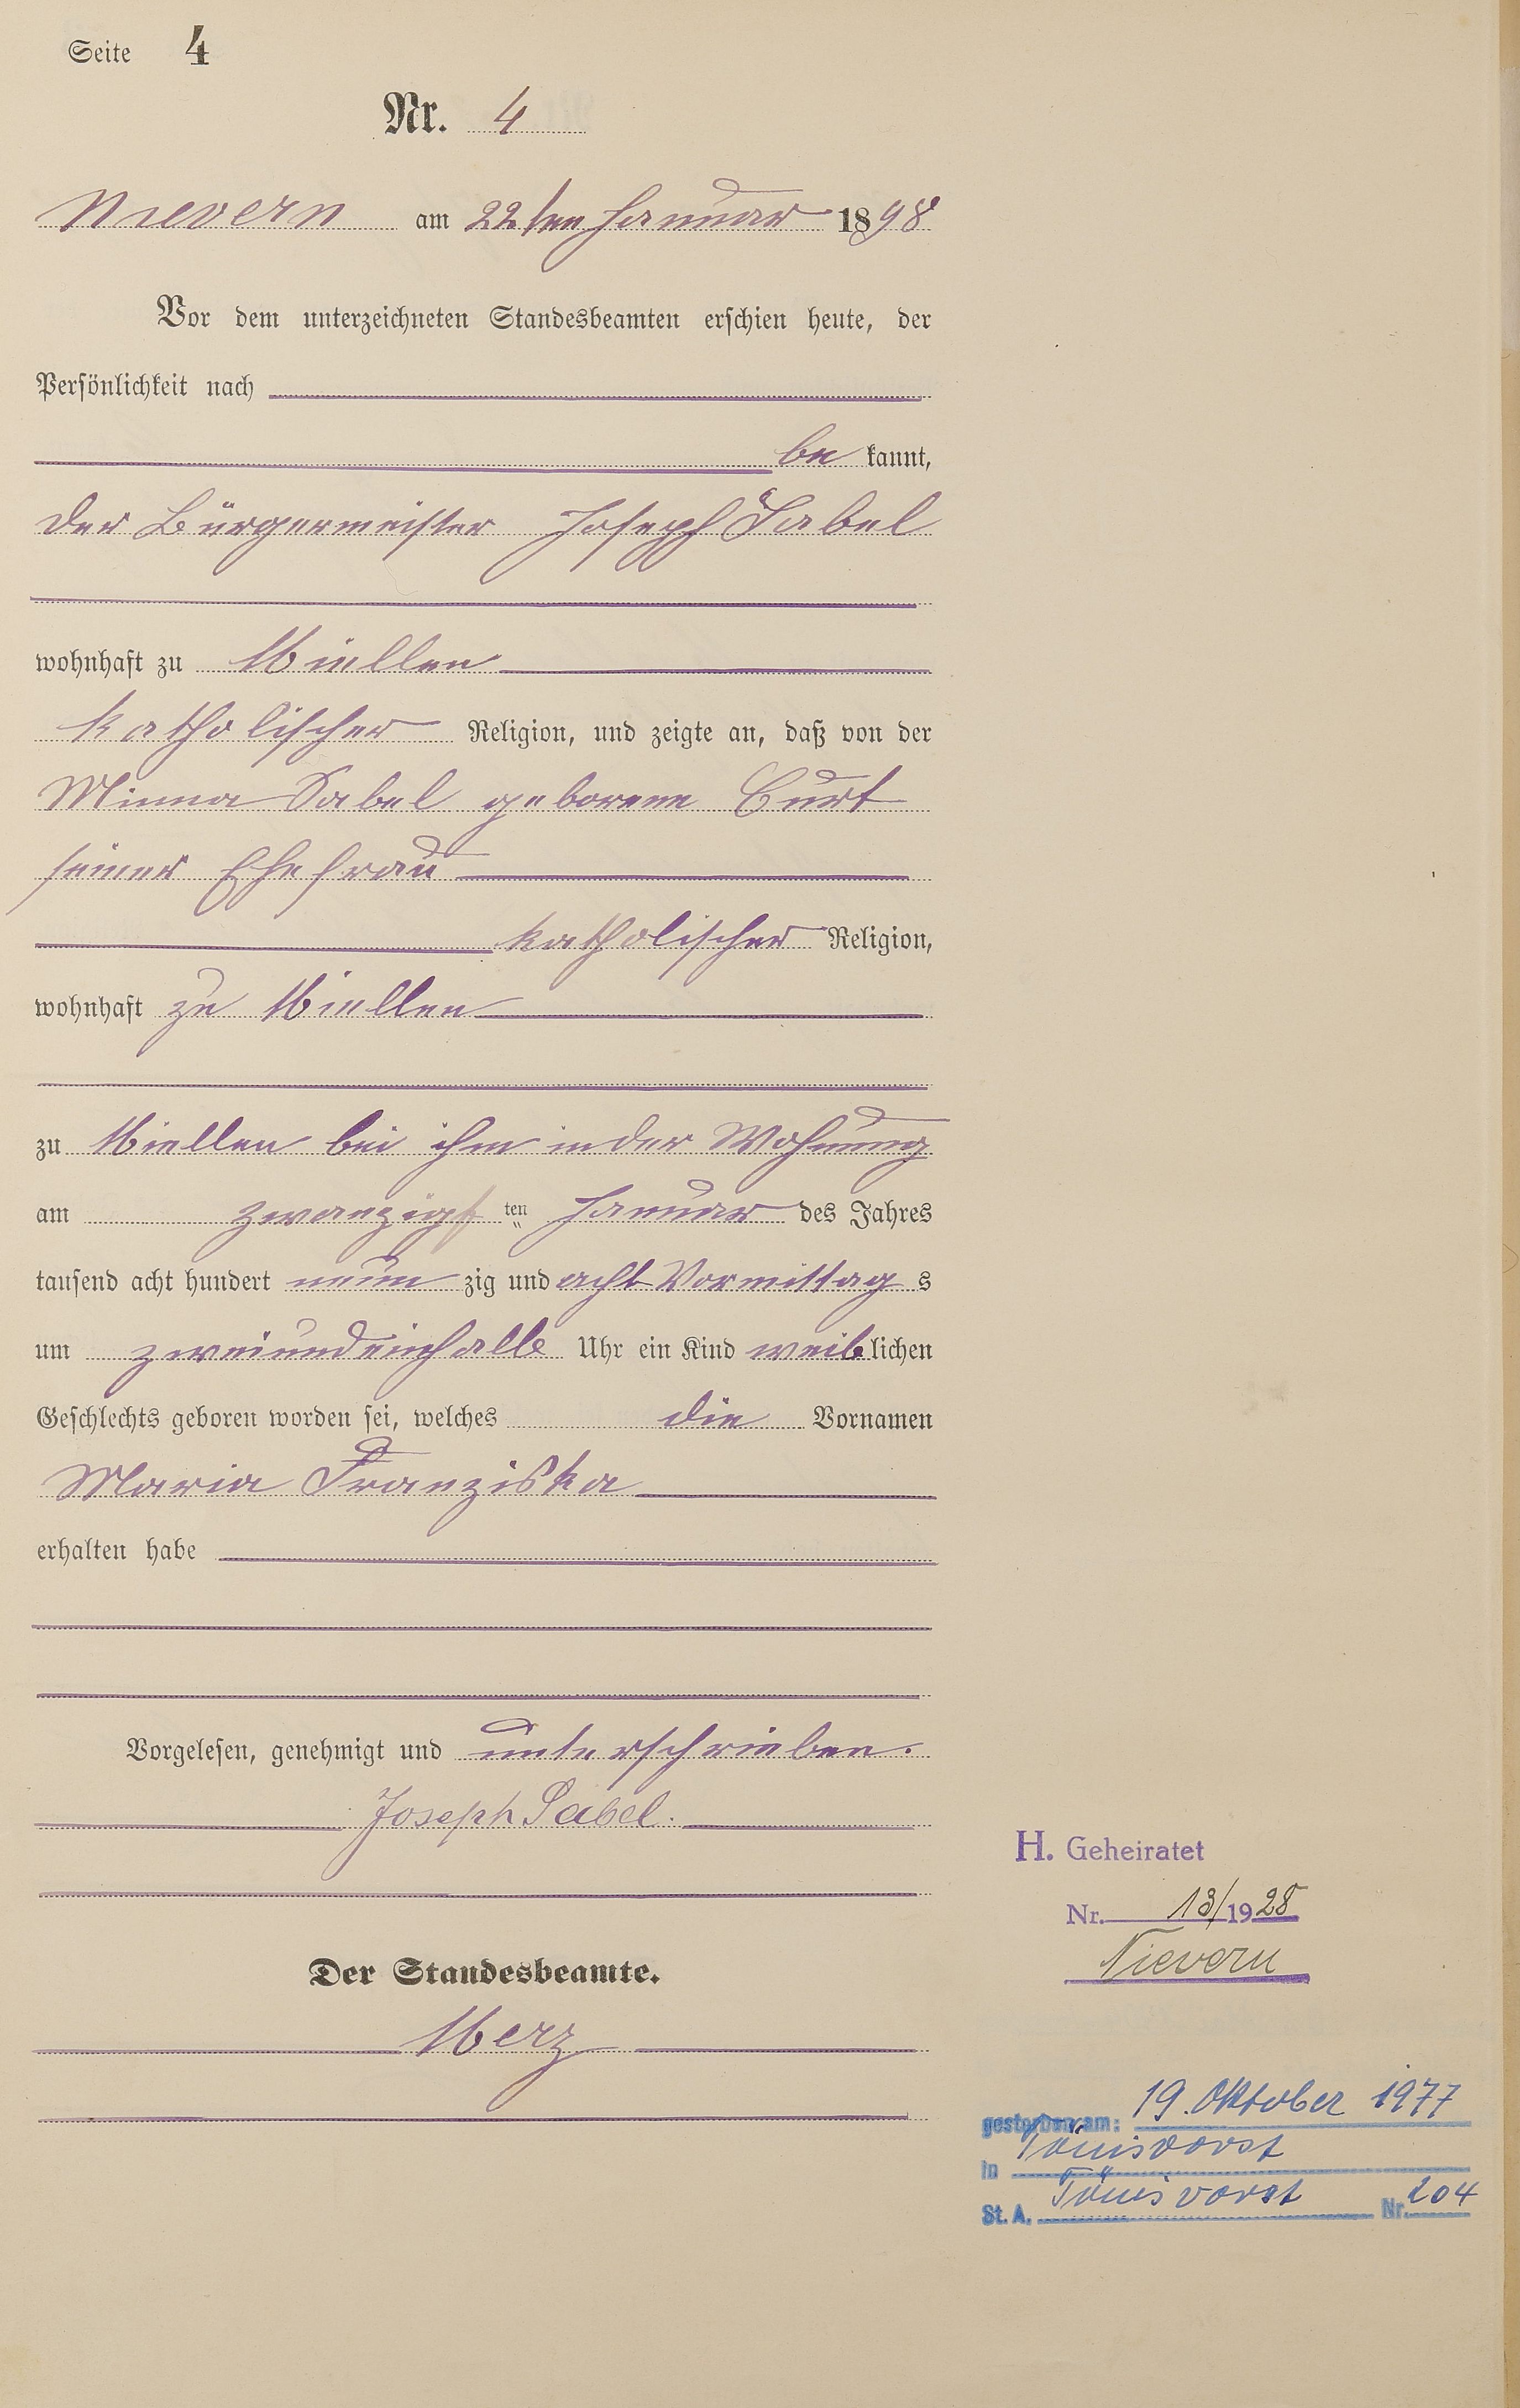 Seite 4
Nr. 4
Nievern am 22ten Januar 1898
Vor dem unterzeichneten Standesbeamten erschien heute, der
Persönlichkeit nach
be kannt,
der Bürgermeister Joseph Sabel
wohnhaft zu Miellen
katholischer Religion, und zeigte an, daß von der
Minna Sabel geborene Curt
seiner Ehefrau
katholischer Religion,
wohnhaft zu Miellen
zu Miellen bei ihm in der Wohnung
am zwanzigsten Januar des Jahres
tausend acht hundert neun zig und acht Vormittag s
um zweiundeinhalb Uhr ein Kind weiblichen
Geschlechts geboren worden sei, welches die Vornamen
Maria Franziska
erhalten habe
Vorgelesen, genehmigt und unterschrieben.
Joseph Sabel.
Der Standesbeamte.
Merz
H. Geheiratet
Nr. 13/1928
Nievern
gestorben am: 19. Oktober 1977
in Tönisvorst
St. A. Tönisvorst Nr. 204